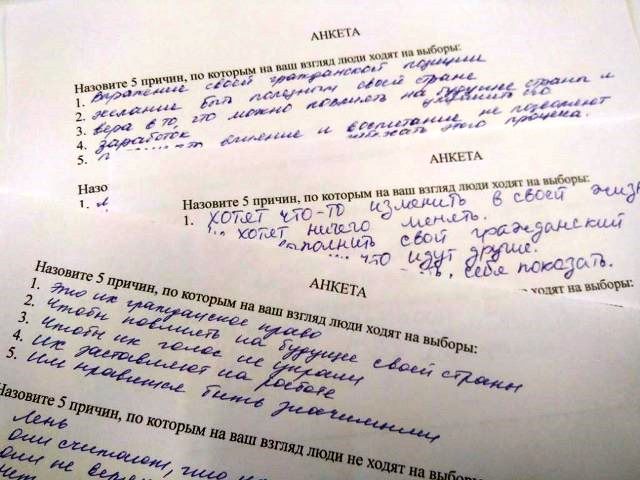 АНКЕТА
Назовите 5 причин, по которым на ваш взгляд люди ходят на выборы:
1. Выражение своей гражданской позиции
2. желание быть полезным своей стране
3. вера в то, что можно повлиять на будущее страны и
улучшить его
4. заработок
5. влияние и воспитание не позволяют
избежать этого процесса.
АНКЕТА
Назо
1.
Назовите 5 причин, по которым на ваш взгляд люди ходят на выборы:
1. хотят что-то изменить в своей жизн
хотят ничего менять.
свой гражданский
что идут другие.
себя показать.
ходят на выборы:
АНКЕТА
Назовите 5 причин, по которым на ваш взгляд люди ходят на выборы:
1. Это их гражданское право
2. Чтобы повлиять на будущее своей страны
3. Чтобы их голос не украли
4. Их заставляют на работе
5. Им нравится быть значимыми
Назовите 5 причин, по которым на ваш взгляд люди не ходят на выборы:
Лень
они считают, что
они не